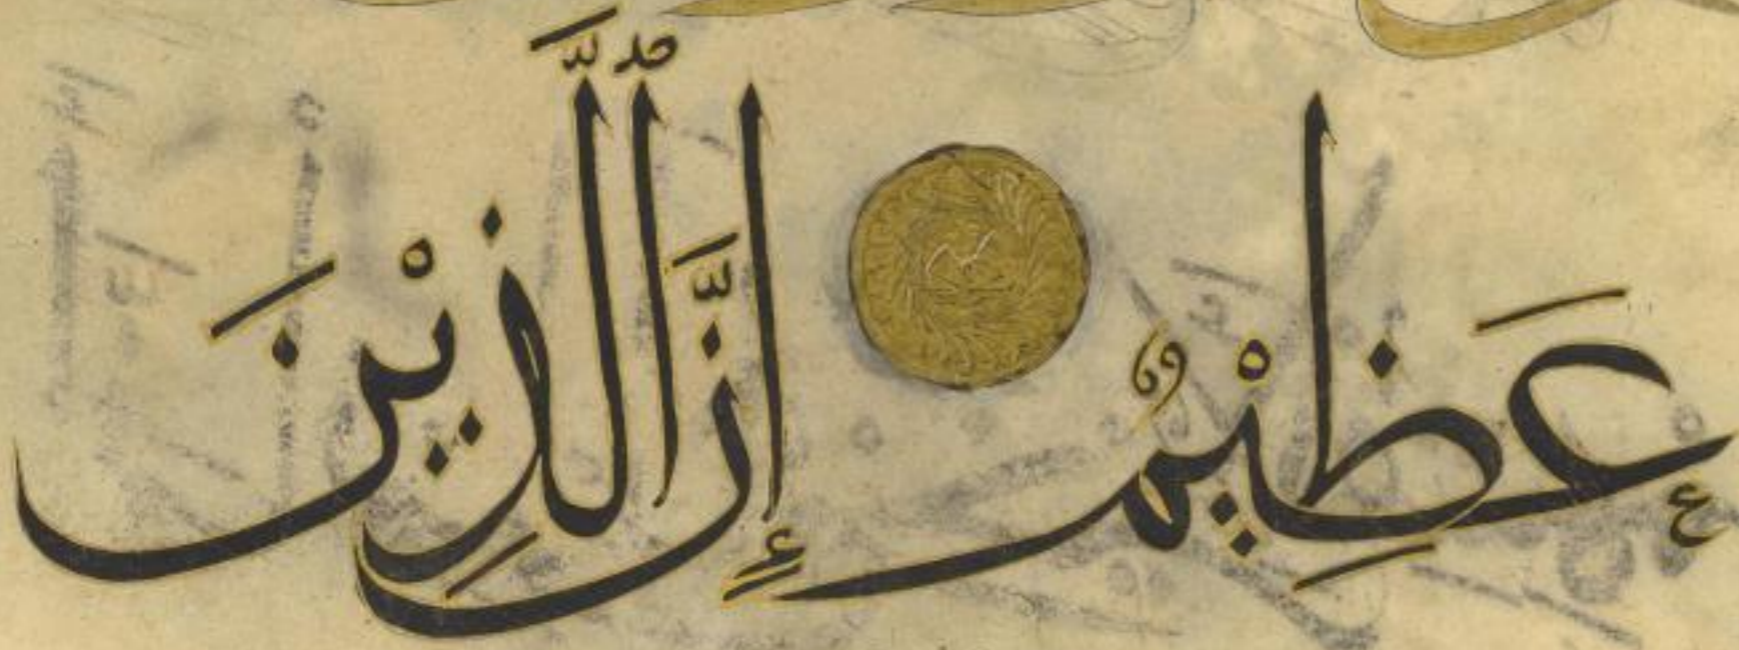 عَظِيْمٌ إِنَّ ٱلَّذِيْنَ